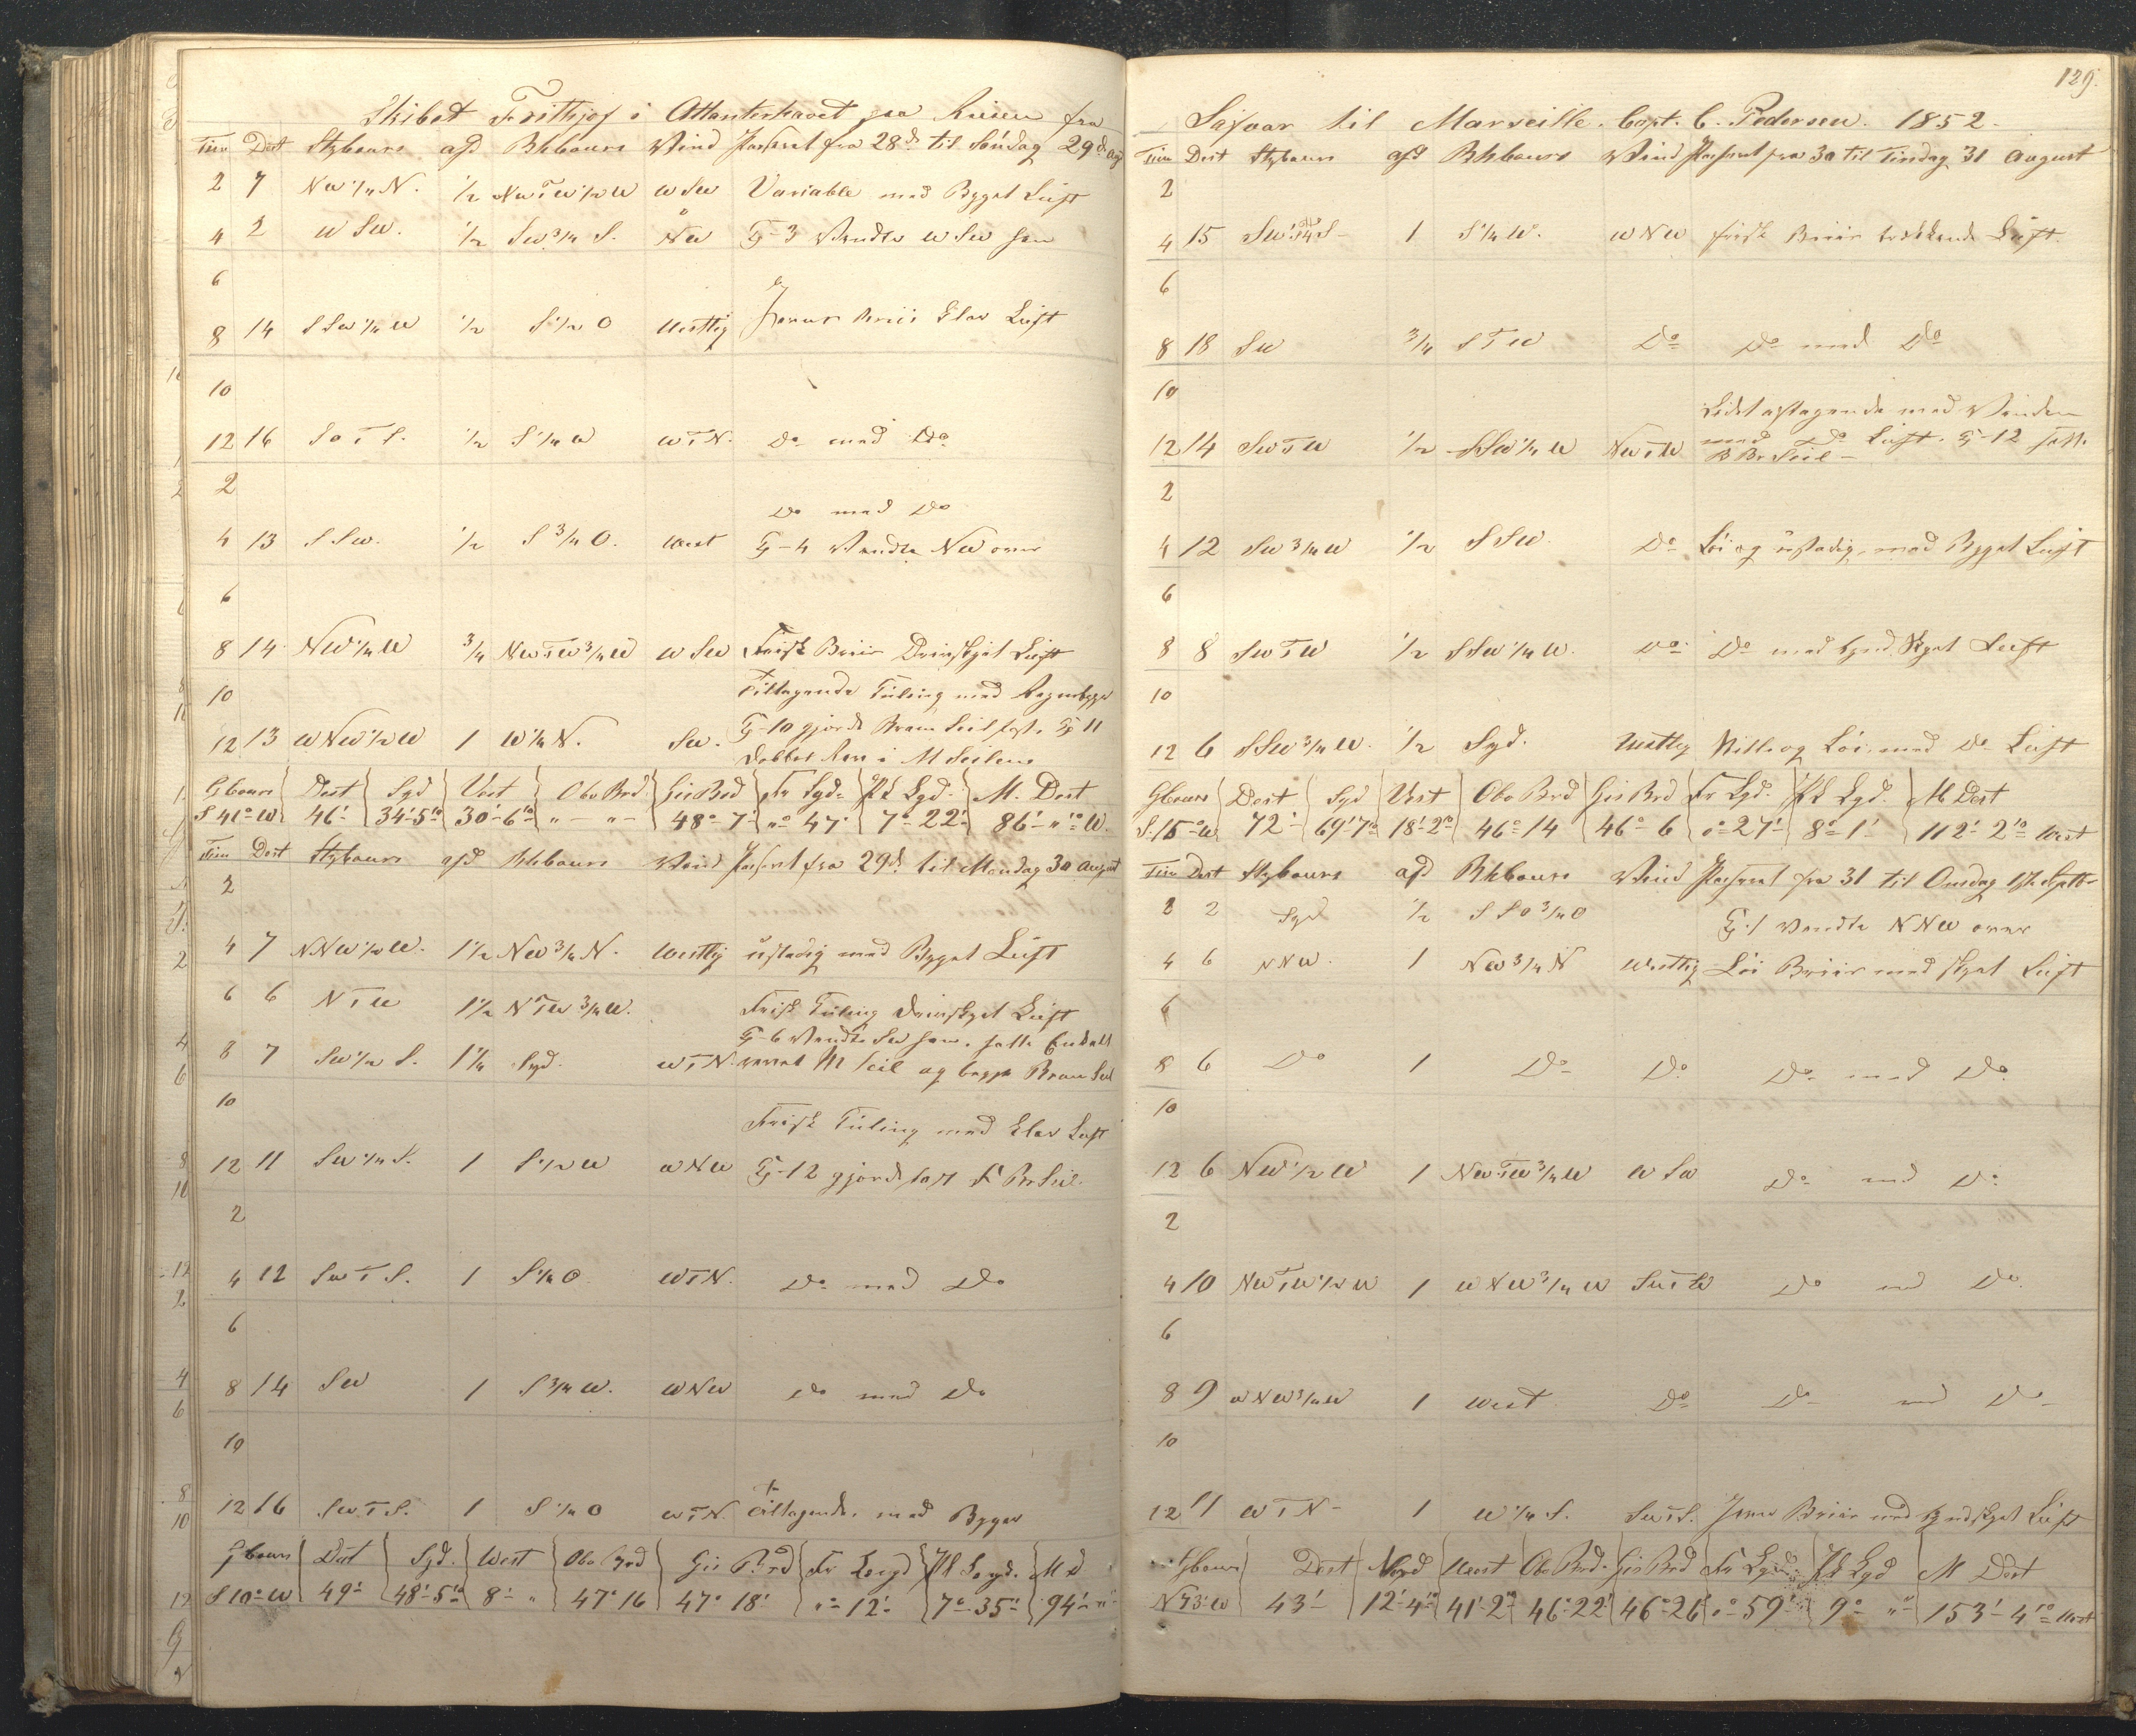 Skibet Frithjof i Atlanterhavet paa Reisen fra
Tim Dist Stybours afd Bhbours Wind Passeret fra 28de til Søndag 29de aug
2 7 NW 1/4 N. 1/2 NWTW 1/2 W WSW Variable med Byget Luft
4 2 WSW. 1/2 SW 3/4 S. NW Kl-3 Vendte WSW hen
6
8 14 SSW 1/4 W 1/2 S 1/2 O Westlig Jevne Briis Klar Luft
10
12 16 SOTS. 1/2 S 1/4 W WTN. Do med Do
2
Do med Do
4 13 SSW. 1/2 S 3/4 O. West Kl-4 Vendte NW over
6
8 14 NW 1/4 W 3/4 NWTW 3/4 W WSW Frisk Briis Drivskyet Luft
10 Tiltagende Kuling med Regnbyger
Kl-10 gjorde Bram Seil fast. Kl 11
12 13 WNW 1/2 W 1 W 1/4 N. SW. Dobbet Rev i M Seilene
Gbours Dist Syd Vest Obs Brd Gis Brd Fr Lgd. Pd Lgd. M. Dist
S 41° W 46' 34'-5 30'-6 " - " 48°-7' "° 47' 7°-22' 86'-" W.
Tim Dist Stybours afd Bhbours Wind Passeret fra 29de til Mandag 30 August
2
4 7 NNW 1/2 W. 1 1/2 NW 3/4 N. Westlig ustadig med Byget Luft
6 6 NTW 1 1/2 NTW 3/4 W. Frisk Kuling Drivskyet Luft
Kl-6 Vendte SW hen. satte Enkelt
8 7 SW 1/2 S. 1 1/4 Syd. WTN. revet M Seil og begge Bram Seil
10
Frisk Kuling med Klar Luft
12 11 SW 1/4 S. 1 S 1/2 W WNW Kl-12 gjorde fast F Br Seil.
2
4 12 SWTS. 1 S 1/4 O WTN. Do med Do
6
8 14 SW 1 S 3/4 W. WNW Do med Do
10
12 16 SWTS. 1 S 1/4 O WTN. Tiltagende. med Byger
Gbours Dist Syd. West Obs Brd Gis Brd Fr Lengd Pd Lengd. M D
S 10° W 49' 48'-5 8'-" 47° 16 47° 18' "° 12' 7°-35' 94'-"
129.
Safvar til Marseille. Capt. C. Pedersen. 1852.
Tim Dist Stybours afd Bhbours Wind Passeret fra 30 til Tirsdag 31 August
2
4 15 SW 1/4 S 1 S 1/4 W. WNW frisk Briis trækkende Luft.
6
8 18 SW 3/4 STW Do Do med Do
10
Lidt aftagende med Vinden
12 14 SWTW 1/2 SSW 1/4 W NWTW med Do Luft. Kl-12 satte
B Br Seil
2
4 12 SW 3/4 W 1/2 SSW. Do Løi og ustadig, med Byget Luft
6
8 8 SWTW 1/2 SSW 1/4 W. Do Do med tynd Skyet Luft
10
12 6 SSW 3/4 W. 1/2 Syd. Westlig Stille og Løi. med Do Luft
Gbours Dist Syd Vest Obs Brd Gis Brd Fr Lgd. Pd Lgd. M Dist
S. 15° W 72' 69'7 18'2 46°14 46°6 "°27' 8°-1' 112' 2 West
Tim Dist Stybours afd Bhbours Wind Passeret fra 31 til Onsdag 1ste Septbr
2 2 Syd 1/2 SSO 3/4 O Kl.1 Vendte NNW over
4 6 NNW. 1 NW 3/4 N Westlig Løi Briis med skyet Luft
6
8 6 Do 1 Do Do Do med Do
10
12 6 NW 1/2 W 1 NWTW 3/4 W WSW Do med Do
2
4 10 NWTW 1/2 W 1 WNW 3/4 W SWTW Do med Do
6
8 9 WNW 3/4 W 1 West Do Do med Do
10
12 11 WTN 1 W 1/4 S. SWTS. Jevn Briis med tyndskyet Luft
Gbours Dist Nord West Obs Brd. Gis Brd Fr Lgd Pd Lgd M Dist
N 73° W 43' 12'-4 41'2 46°22' 46°26 "°59' 9° "" 153'-4 West